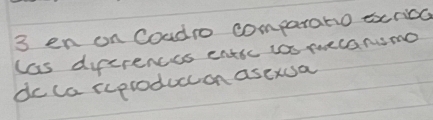 3 en un Cuadro comparativo escriba
las diferencias entre los mecanismo
de la reproduccion asexua